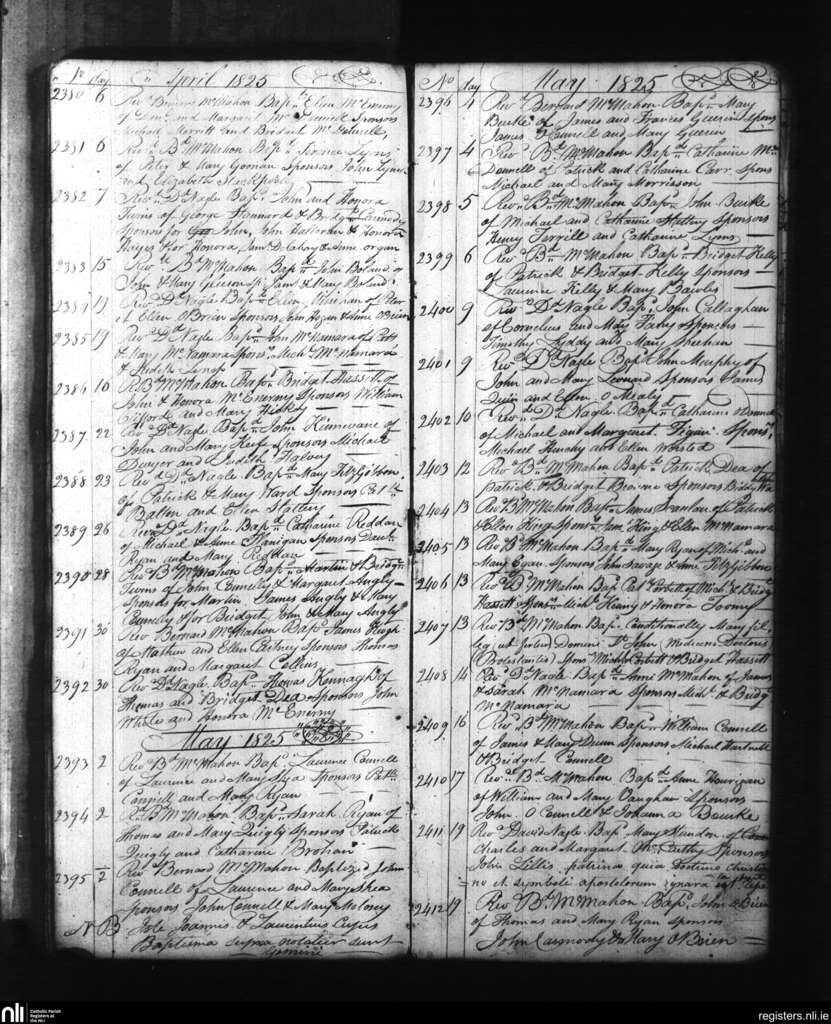 No day April 1825
2380 6 Revd Bernard McMahon Bapd Ellen McEnerny
of and Margaret Mc Sponsors
Merritt and Bridget Mc
2381 6 Revd Bd McMahon Bapd Lyons
of Peter & Mary Goonan Sponsors John Lyns
and Elizabeth Stackpoole
2382 7 Revd Dd Nagle Bapd John and Honora
Twins of George & Bridget
Sponsors for John, John Halloran & Honora
Hayes & for Honora, James Delahoy & Anne organ
2383 15 Revd Bd McMahon Bapd John Boland of
John & Mary Gleeson Sp: James & Mary Boland
2384 19 Revd Dd Nagle Bapd Ellen of Peter
et Ellen OBrien Sponsors John Hogan & Anne OBrien
2385 19 Revd Dd Nagle Bapd John McNamara of Pat
& Mary McNamara Sponrs Michl McNamara
& Judith
2386 10 R B McMahon Bapd Bridget Hassett of
John & Honora McEnerny Sponsors William
and Mary Hickey
2387 22 Revd Dd Nagle Bapd John Kinnevane of
John and Mary Keefe Sponsors Michael
Dwyer and Judith Halvey
2388 23 Revd Dd Nagle Bapd Mary FitzGibbon
of Patrick & Mary Ward Sponsors Patk
Batten and Ellen Slattery
2389 26 Revd Dd Nagle Bapd Catharine Reddan
of Michael & Anne Flanigan Sponsors Danl
Ryan and Mary Reddan
2390 28 Revd Bd McMahon Bapd Martin & Bridgt
Twins of John Connelly & Margaret Hugly
Sponrs for Martin James Hugly & Mary
Connely & for Bridget John & Mary Hugly
2391 30 Revd Bernard McMahon Bapd Keogh
of Mathew and Ellen Sponsors Thomas
Ryan and Margaret Collins
2392 30 Revd Dd Nagle Bapd Thomas Kennagh of
Thomas and Bridget Dea Sponsors John
Whele and Honora McEnerny
May 1825
2393 2 Revd Bd McMahon Bapd Laurence Connell
of Laurence and Mary Shea Sponsors Patk
Connell and Mary Ryan
2394 2 R. B McMahon Bapd Sarah Ryan of
Thomas and Mary Quigly Sponsors Patrick
Quigly and Catharine Brohan
2395 2 Revd Bernard McMahon Baptized John
Connell of Laurence and Mary Shea
Sponsors John Connell & Mary Moloney
N B Joannis & Laurentius
Baptisma supra notatur sunt
gemini
No day May 1825
2396 4 Revd Bernard McMahon Bapd Mary
Burke of James and Frances Guerin Spons
James & and Mary Guerin
2397 4 Revd Bd McMahon Bapd Catharine Mc
Donnell of Patrick and Catharine Carr Spons
Michael and Mary Morrisson
2398 5 Revd Bd McMahon Bapd John Burke
of Michael and Catharine Slattery Sponsors
Henry Terrill and Catharine Lyons
2399 6 Revd Bd McMahon Bapd Bridget Kelly
of Patrick & Bridget Kelly Sponsors
Laurence Kelly & Mary Bawlis
2400 9 Revd Dd Nagle Bapd John Callaghan
of Cornelius and Mary Fahy Sponsors
Timothy Liddy and Mary Sheehan
2401 9 Revd Dd Nagle Bapd John Murphy of
John and Mary Leonard Sponsors James
and Ellen O Mealy
2402 10 Revd Dd Nagle Bapd Catharine
of Michael and Margaret Spons
Michael and Ellen Worsted
2403 12 Revd Bd McMahon Bapd Patrick Dea of
Patrick & Bridget Browne Sponsors
2404 13 Revd Bd McMahon Bapd James Scanlan of Patrick
& Ellen King Sponrs James King & Ellen McNamara
2405 13 Revd Bd McMahon Bapd Mary Ryan of Michl and
Mary Egan Sponsors John Savage & Anne FitzGibbon
2406 13 Revd Bd McMahon Bapd Patk Corbett of Michl & Bridgt
Hassett Sponrs Michl Kenny & Honora Toomey
2407 13 Revd Bd McMahon Bapd Conditionally Mary fil
leg ut Domini Dr John (Medicini Doctoris
Protestantis) Spons Michl Corbett & Bridget Hassett
2408 14 Revd D Nagle Bapd Anne McMahon of James
& Sarah McNamara Sponsors Michl & Bridgt
McNamara
2409 16 Revd Bd McMahon Bapd William Connell
of James & Mary Dunn Sponsors Michael Hartnell
& Bridget Connell
2410 17 Revd Bd McMahon Bapd Anne Hourigan
of William and Mary Vaughan Sponsors
John O Connell & Johanna Bourke
2411 19 Revd David Nagle Bapd Mary of
Charles and Margaret Sponsors
John Lillis patrina quia
no et symboli apostolorum ignara est
2412 19 Revd Bd McMahon Bapd John OBrien
of Thomas and Mary Ryan sponsors
John Carmody & Mary OBrien
nli Catholic Parish
Registers at
the NLI
registers.nli.ie